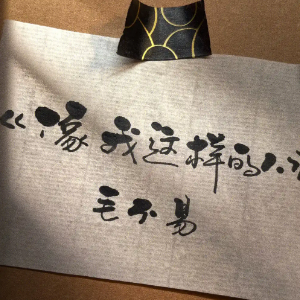 《像我这样的人
毛不易